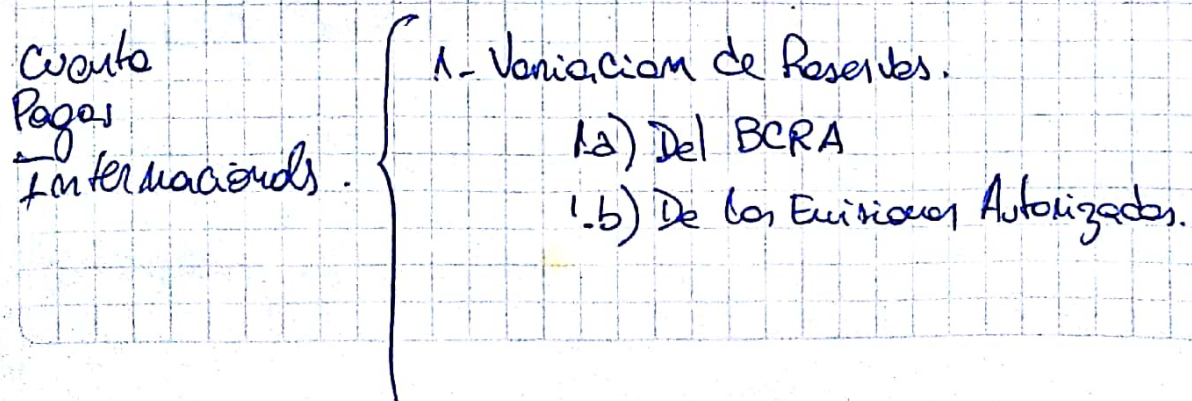 Cuenta
Pagos
Internacionals.
1- Variacion de Reservas.
1a) Del BCRA
1.b) De las Emisiones Autorizadas.